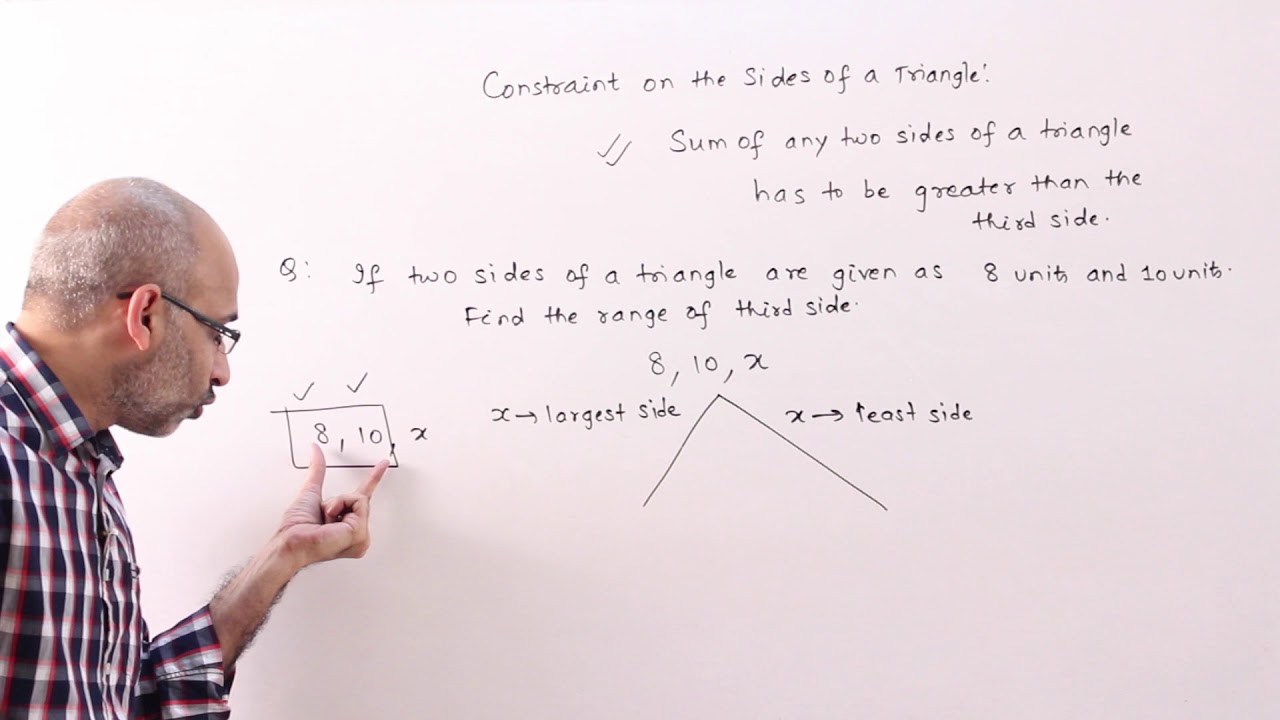 Constraint on the Sides of a Triangle:
Sum of any two sides of a triangle
has to be greater than the
third side.
Q: If two sides of a triangle are given as 8 units and 10 units.
Find the range of third side.
8, 10, x
x → largest side
x → least side
8, 10, x